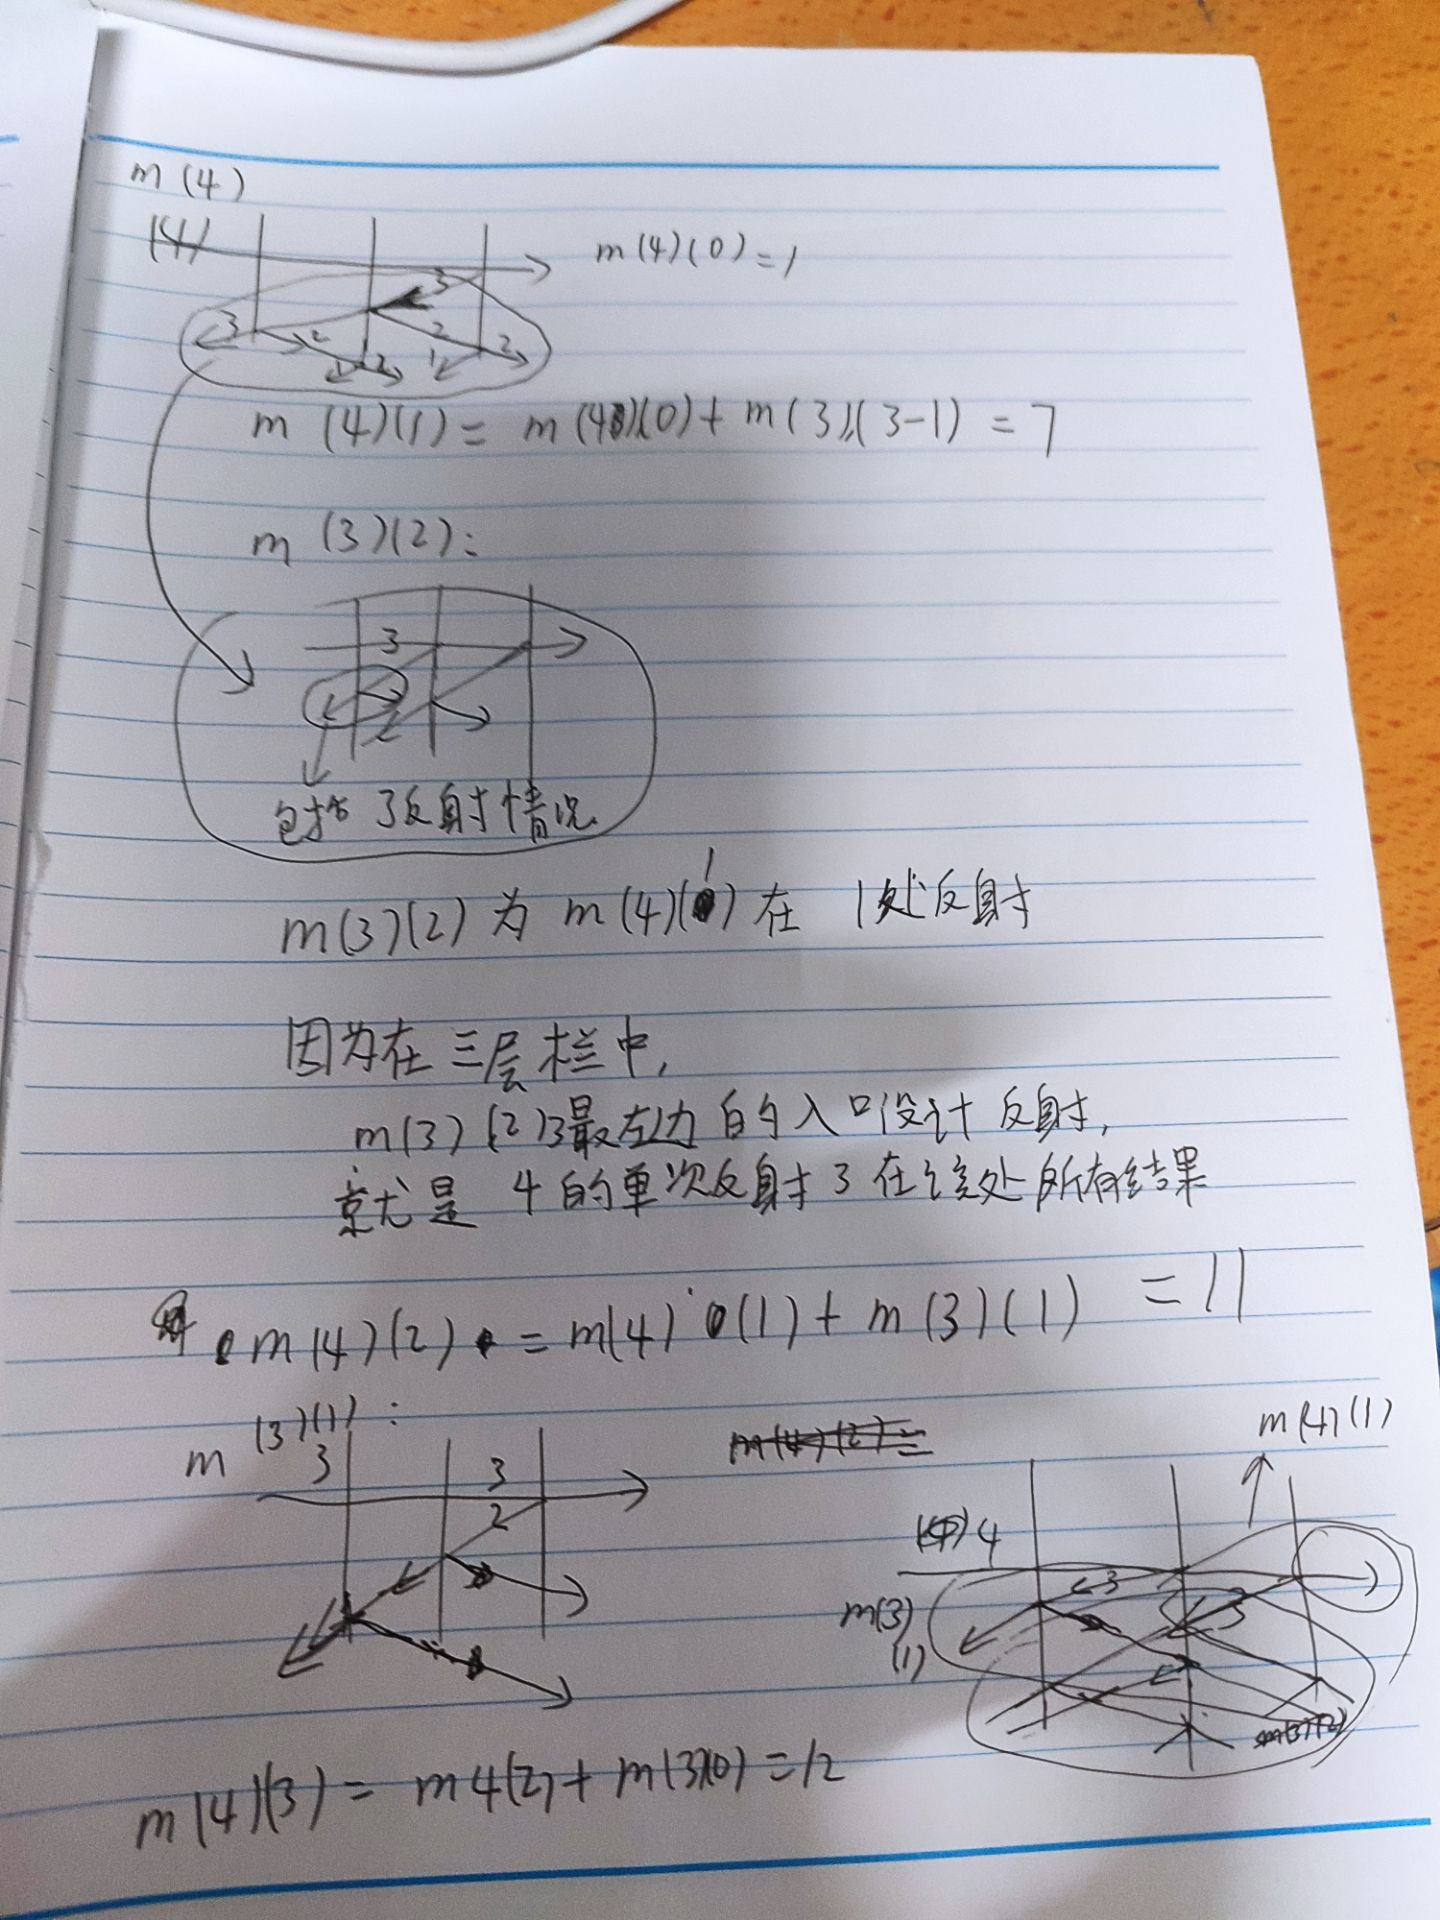 m(4)
(4)
m(4)(0)=1
3
3 2 2 2
1 2 1
m (4)(1) = m(4)(0) + m(3)(3-1) = 7
m (3)(2):
3
包括了反射情况
m(3)(2) 为 m(4)(1) 在 1处反射
因为在三层栏中,
m(3)(2)3最左边的入口设计反射,
就是 4的单次反射3在该处所有结果
m(4)(2) = m(4)(1) + m(3)(1) = 11
m (3)(1):
3 3
2
m(4)(2)=
m(4)(1)
4
3
m(3)
3
(1)
m(3)(2)
m(4)(3) = m4(2) + m(3)(0) = 12